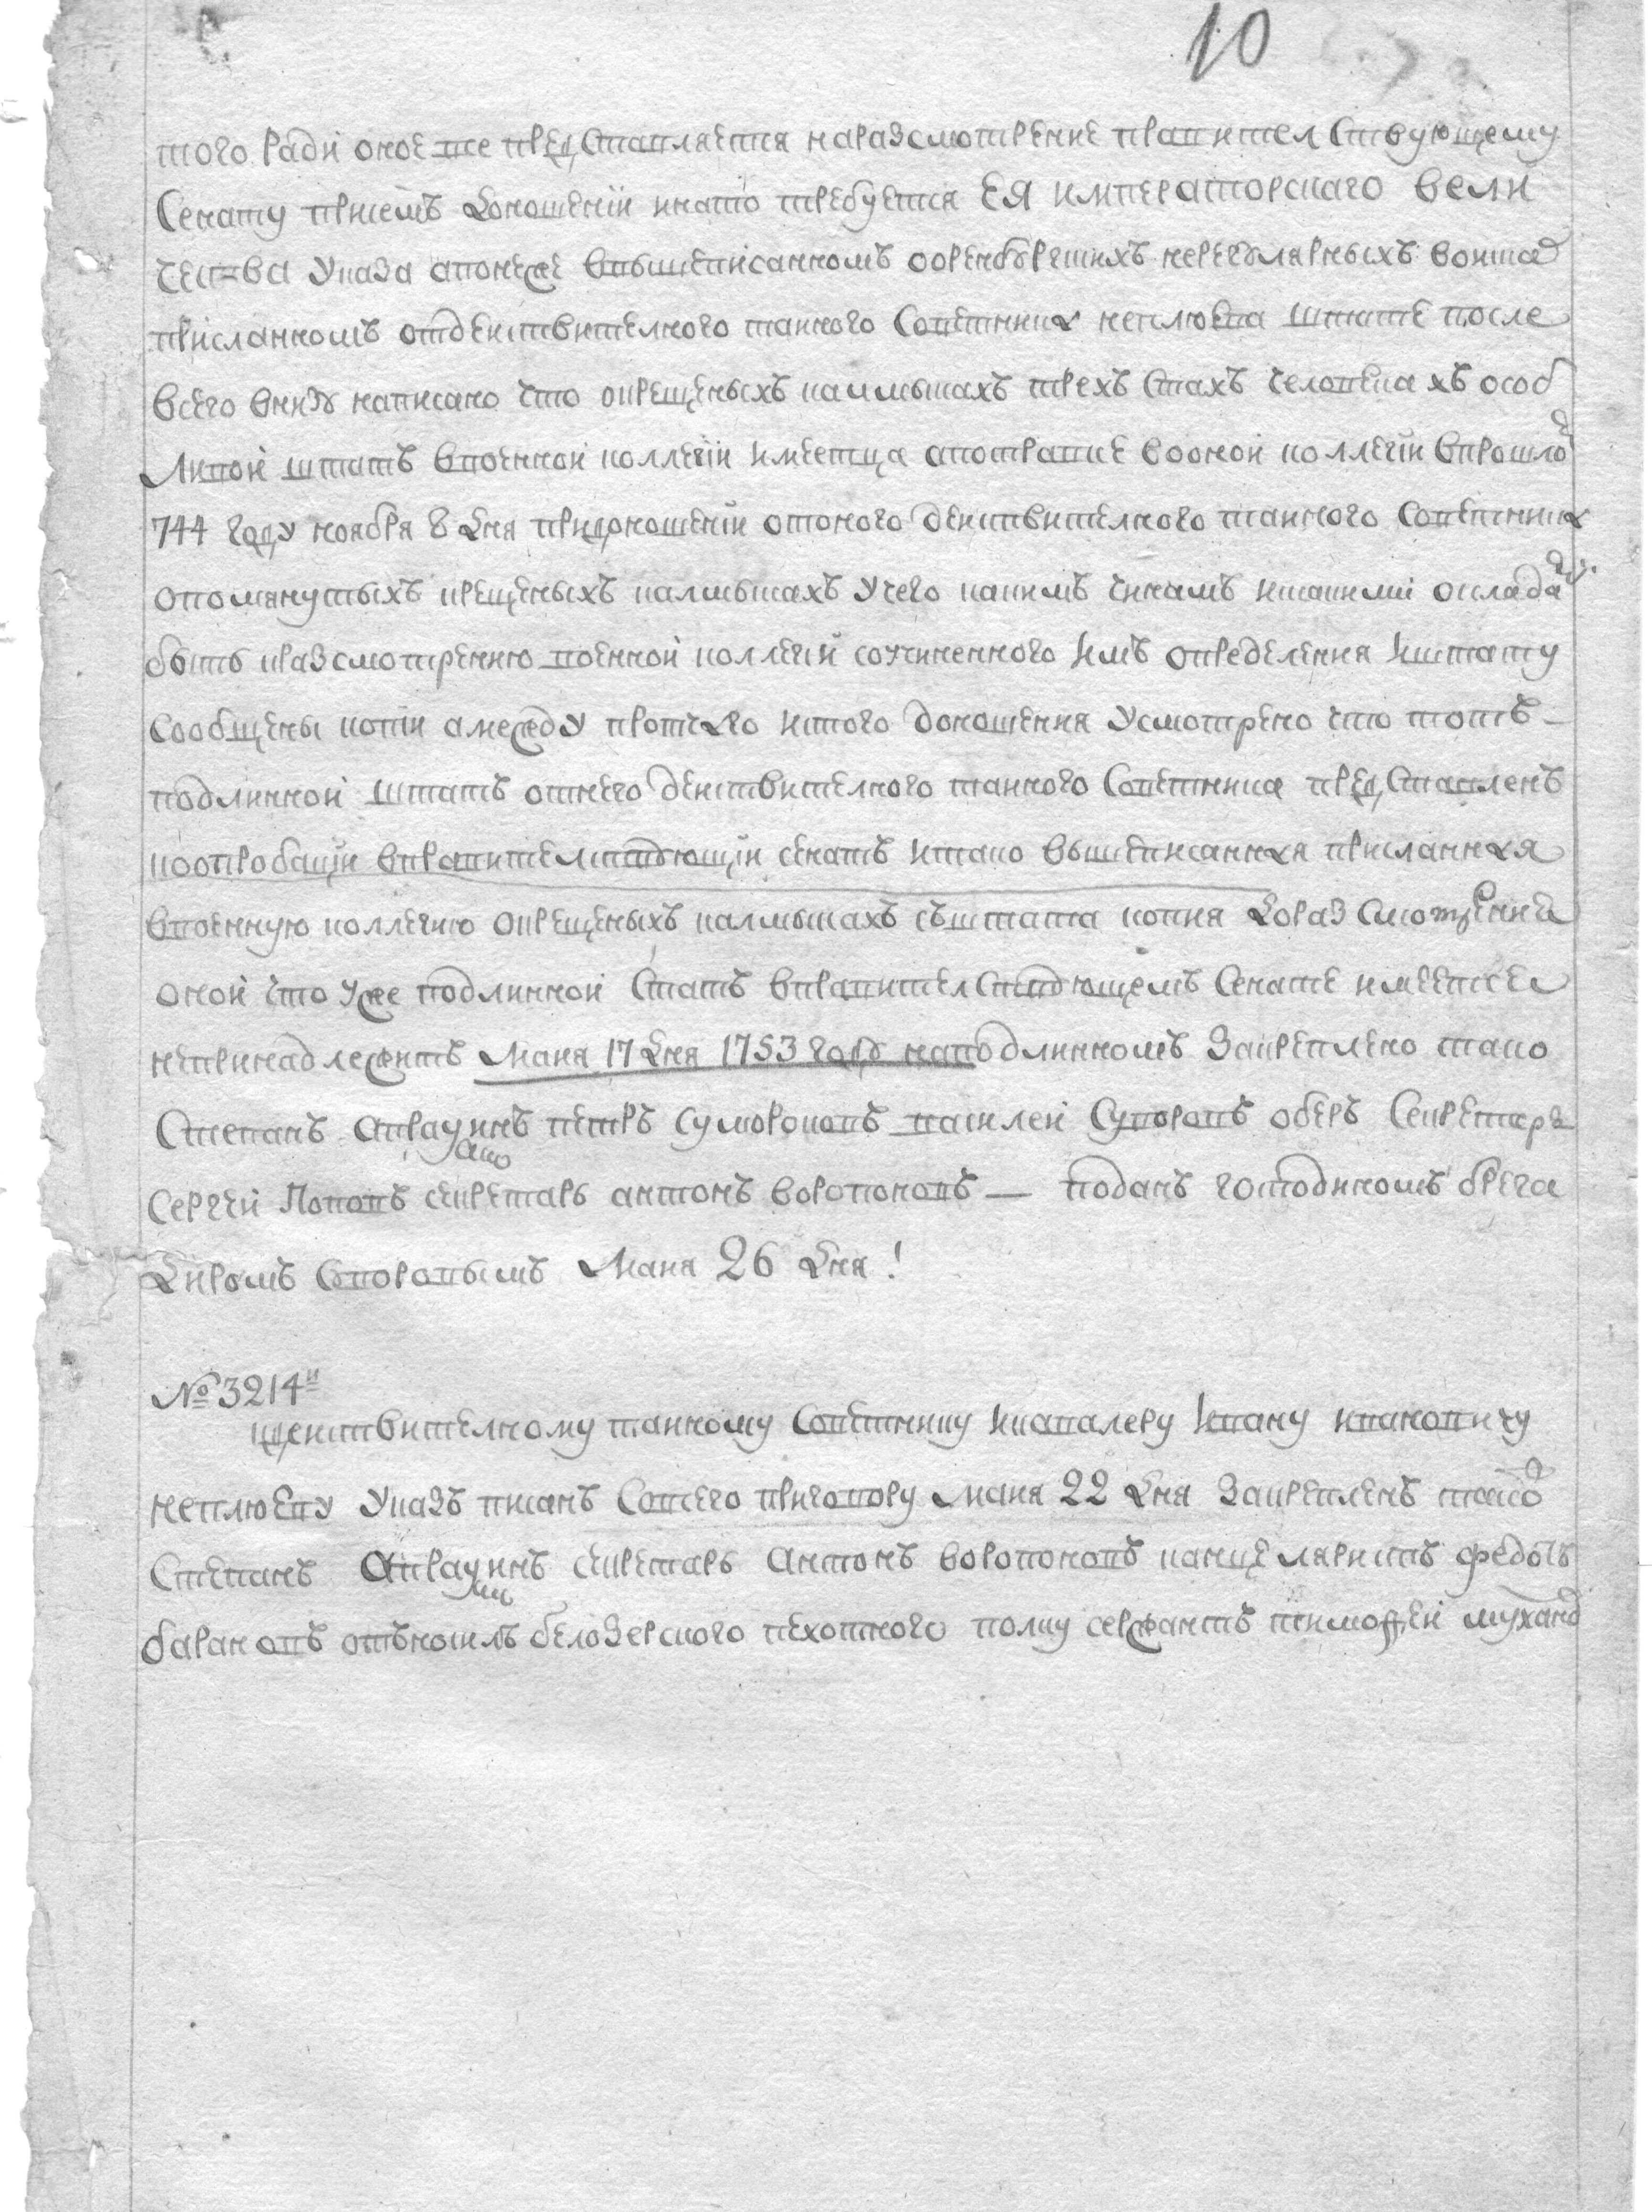 10
того ради оное все представляется на разсмотрение правителствующему
Сенату присемъ доношениї и на то требуется Ея императорскаго вели
чества указа а понеже в вышеписанномъ о оренбурскихъ нерегулярныхъ воиска
присланномъ от деиствителного таиного советника неплюева штате после
всего внизу написано что о крещеныхъ калмыкахъ трехъ стахъ человекахъ особ
ливой штатъ в военной коллегїи имеетца а по справке во оной коллегїи в прошло
744 году ноября 8 дня при доношениї от оного деиствителного таиного советника
о помянутыхъ крещеныхъ калмыкахъ у чего какимъ чинамъ и таким окладам
быть к разсмотрению военной коллегїи сочиненного имъ определения и штату
сообщены копїи а между протчего и с того доношения усмотрено что тотъ
подлинной штатъ от него деиствителного таиного советника представленъ
к опробацїи в правителствующїи сенатъ и тако вышеписанная присланная
в военную коллегию о крещеныхъ калмыкахъ съ штата копия до разсмотрения
оной что уже подлинной статъ в правителствующемъ Сенате имеется
не принадлежитъ маия 17 дня 1753 году на подлинномъ закреплено тако
Степанъ Апраксинъ петръ сумороковъ василей Суворовъ оберъ секретарь
Сергей Поповъ секретарь антонъ воропоновъ — поданъ господиномъ брега
диромъ Суворовымъ маия 26 дня
№ 3214й
деиствителному таиному советнику и кавалеру Ивану ивановичу
неплюеву указъ писанъ с сего приговору маия 22 дня закрепленъ тако
Степанъ Апраксинъ секретарь Антонъ воропоновъ канцеляристъ федоръ
барановъ отъносилъ белозерского пехотного полку сержантъ тимофеи муханов